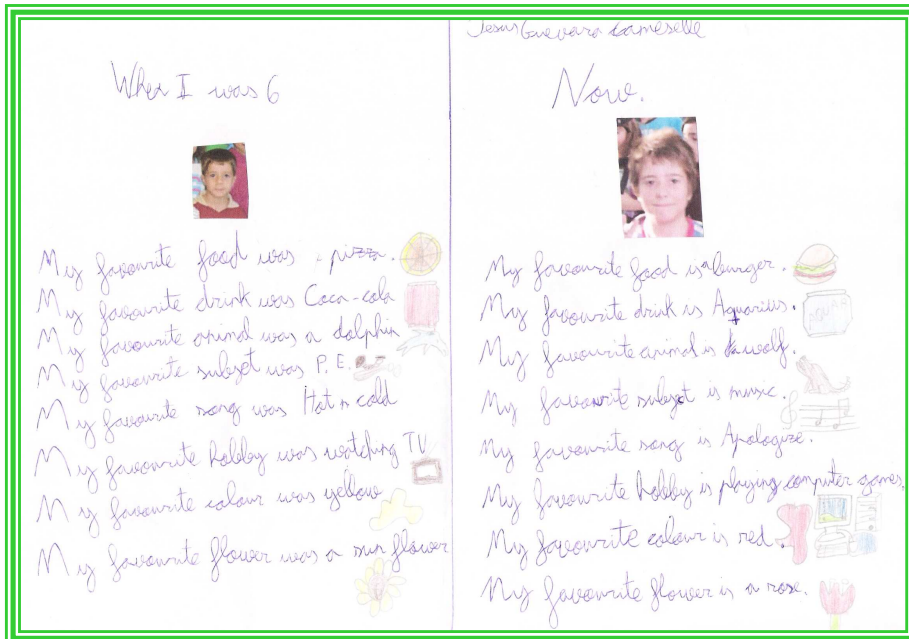 When I was 6
My favourite food was pizza.
My favourite drink was Coca-cola
My favourite animal was a dolphin
My favourite subjet was P.E.
My favourite song was Hot n cold
My favourite hobby was watching TV
My favourite colour was yellow
My favourite flower was a sun flower
Jesus Guevara Lameselle
Now.
My favourite food is a burger.
My favourite drink is Aquarius.
AQUAR
My favourite animal is a wolf.
My favourite subjet is music.
My favourite song is Apologize.
My favourite hobby is playing computer games.
My favourite colour is red.
My favourite flower is a rose.